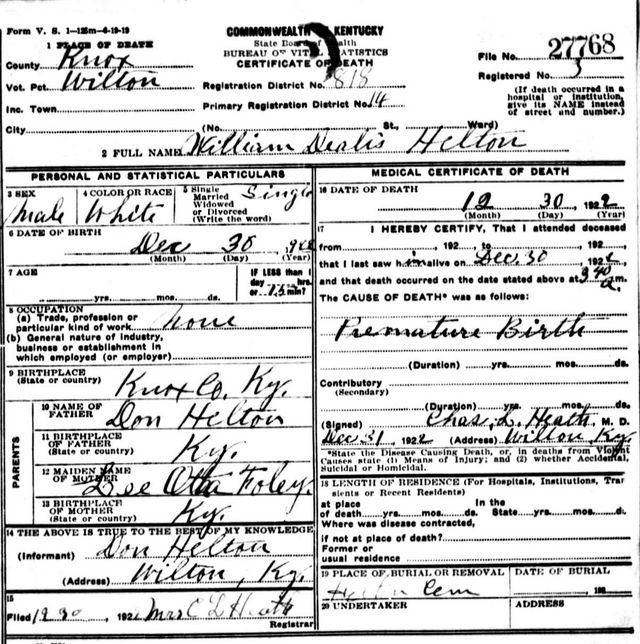 Form V. S. 1-125m-6-19-19
COMMONWEALTH OF KENTUCKY
State Board of Health
BUREAU OF VITAL STATISTICS
CERTIFICATE OF DEATH
1 PLACE OF DEATH
County Knox
Vot. Pct. Wilton
Inc. Town
City
Registration District No. 818
Primary Registration District No. 14
(No. St., Ward)
File No. 27768
Registered No. 3
(If death occurred in a
hospital or institution,
give its NAME instead
of street and number.)
2 FULL NAME William Dealis Helton
PERSONAL AND STATISTICAL PARTICULARS
3 SEX
Male
4 COLOR OR RACE
White
5 Single
Married
Widowed
or Divorced
(Write the word)
Single
6 DATE OF BIRTH
Dec 30
(Month) (Day) (Year)
7 AGE
yrs. mos. ds.
IF LESS than 1
day hrs.
or min?
8 OCCUPATION
(a) Trade, profession or
particular kind of work None
(b) General nature of industry,
business or establishment in
which employed (or employer)
9 BIRTHPLACE
(State or country) Knox Co. Ky.
PARENTS
10 NAME OF
FATHER Don Helton
11 BIRTHPLACE
OF FATHER
(State or country) Ky.
12 MAIDEN NAME
OF MOTHER Lee Otta Foley.
13 BIRTHPLACE
OF MOTHER
(State or country) Ky.
14 THE ABOVE IS TRUE TO THE BEST OF MY KNOWLEDGE
(Informant) Don Helton
(Address) Wilton, Ky.
15
Filed 12 30, 192 Mrs C L Heath
Registrar
MEDICAL CERTIFICATE OF DEATH
16 DATE OF DEATH
12 30 1922
(Month) (Day) (Year)
17 I HEREBY CERTIFY, That I attended deceased
from , 192 , to , 192
that I last saw him alive on Dec. 30 1922
and that death occurred on the date stated above at 3 40 a.m.
The CAUSE OF DEATH* was as follows:
Premature Birth
(Duration) yrs. mos. ds.
Contributory
(Secondary)
(Duration) yrs. mos. ds.
(Signed) Chas. L. Heath M. D.
Dec 31, 1922 (Address) Wilton Ky.
*State the Disease Causing Death, or, in deaths from Violent
Causes state (1) Means of Injury; and (2) whether Accidental,
Suicidal or Homicidal.
18 LENGTH OF RESIDENCE (For Hospitals, Institutions, Tran
sients or Recent Residents)
at place In the
of death yrs. mos. ds. State yrs. mos. ds.
Where was disease contracted,
if not at place of death?
Former or
usual residence
19 PLACE OF BURIAL OR REMOVAL
Cem
DATE OF BURIAL
, 192
20 UNDERTAKER
ADDRESS